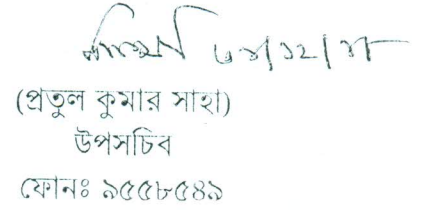 (প্রতুল কুমার সাহা)
উপসচিব
ফোনঃ ৯৫৫৮৫৪৯